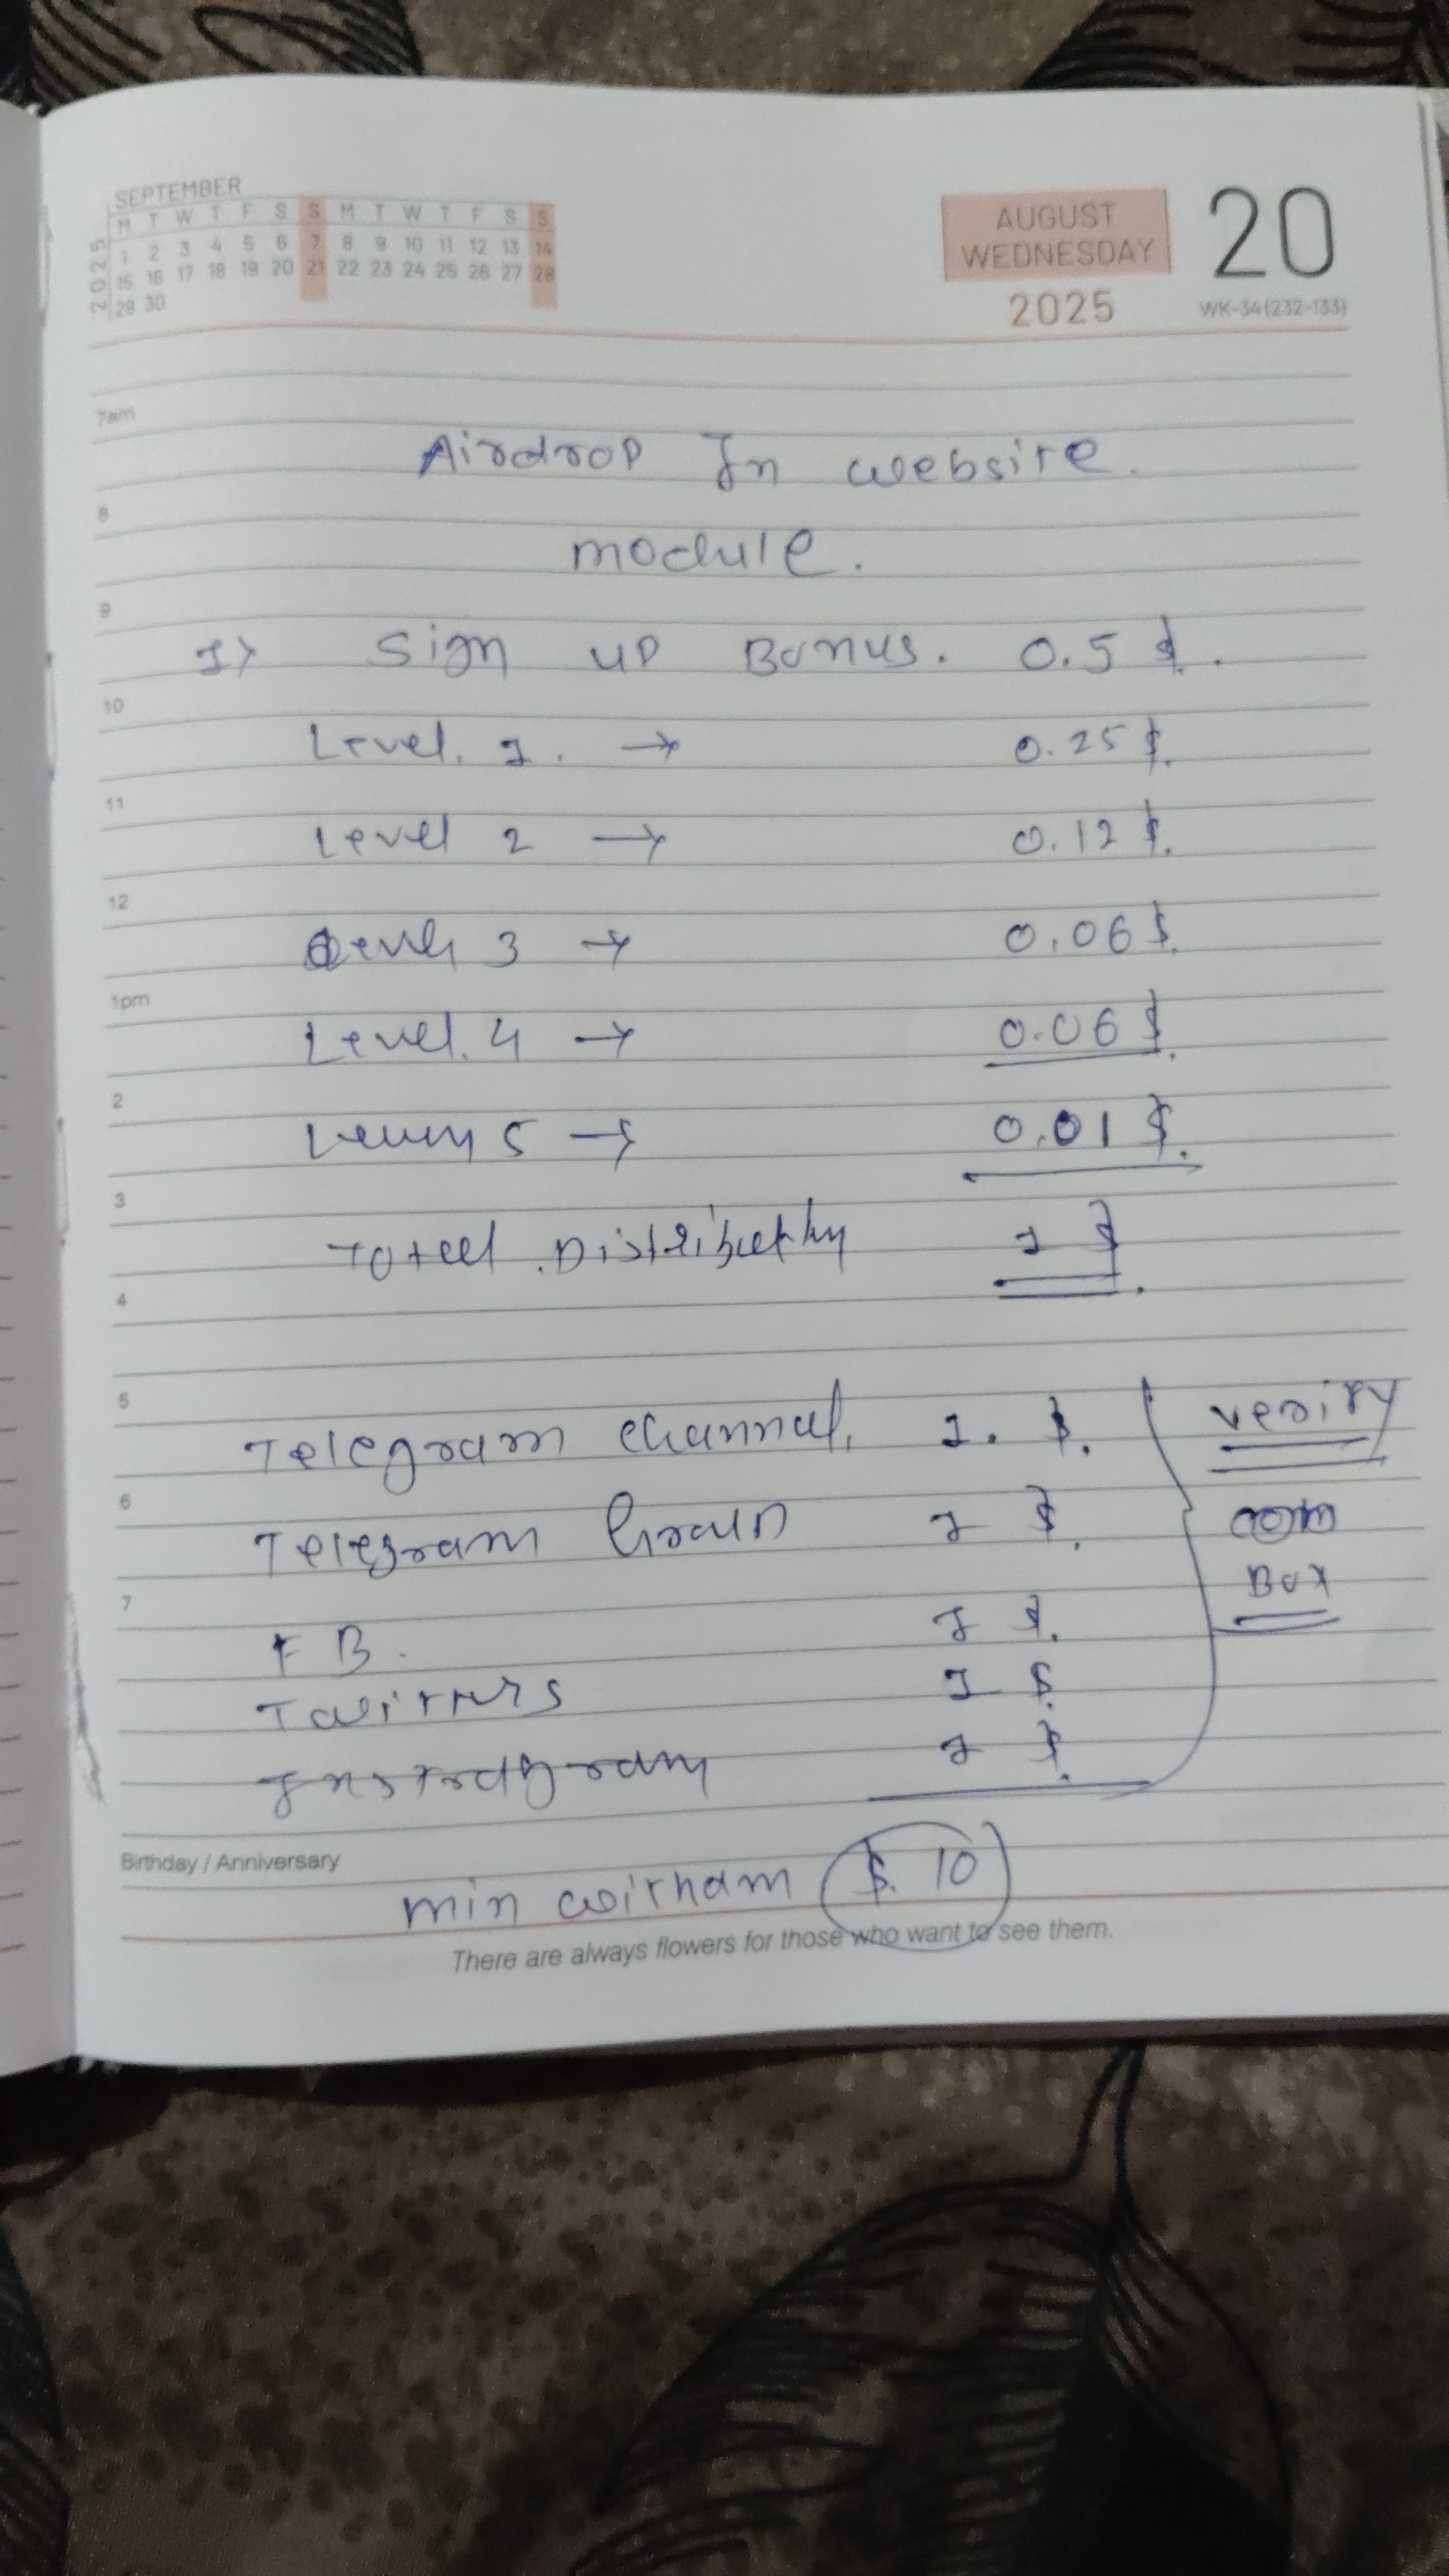 SEPTEMBER
M T W T F S S M T W T F S S
1 2 3 4 5 6 7 8 9 10 11 12 13 14
15 16 17 18 19 20 21 22 23 24 25 26 27 28
29 30
2025
AUGUST
WEDNESDAY
2025
20
WK-34 (232-133)
7am
Airdrop In website.
8
module.
9
1> Sign up Bonus. 0.5 $.
10
Level. 1. → 0.25 $.
11
Level 2 → 0.12 $.
12
3 → 0.06 $.
1pm
Level. 4 → 0.06 $.
2
5 → 0.01 $.
3
Total. 1 $.
4
5
Telegram channal. 1. $. verify
6
Telegram Group 1 $.
7
Box
F B. 1 $.
1 $.
1 $.
Birthday / Anniversary
min $. 10
There are always flowers for those who want to see them.